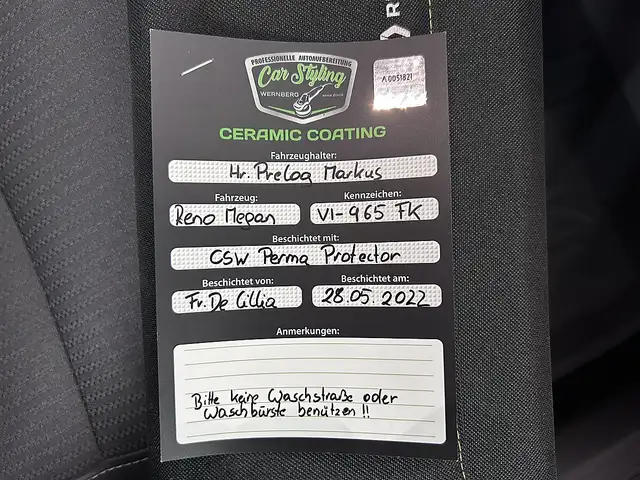 R
PROFESSIONELLE AUTOAUFBEREITUNG
Car Styling
WERNBERG
A0051821
CERAMIC COATING
Fahrzeughalter:
Hr. Prelog Markus
Fahrzeug:
Reno Megan
Kennzeichen:
VI-965 FK
Beschichtet mit:
CSW Perma Protector
Beschichtet von:
Fr. De Cillia
Beschichtet am:
28.05.2022
Anmerkungen:
Bitte keine Waschstraße oder
Waschbürste benützen!!